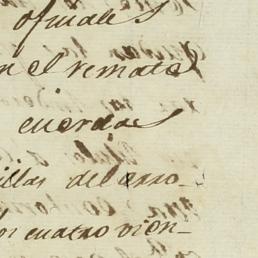 ofiuales
n el remate
cuerdas
illas del arro-
los cuatro vien-